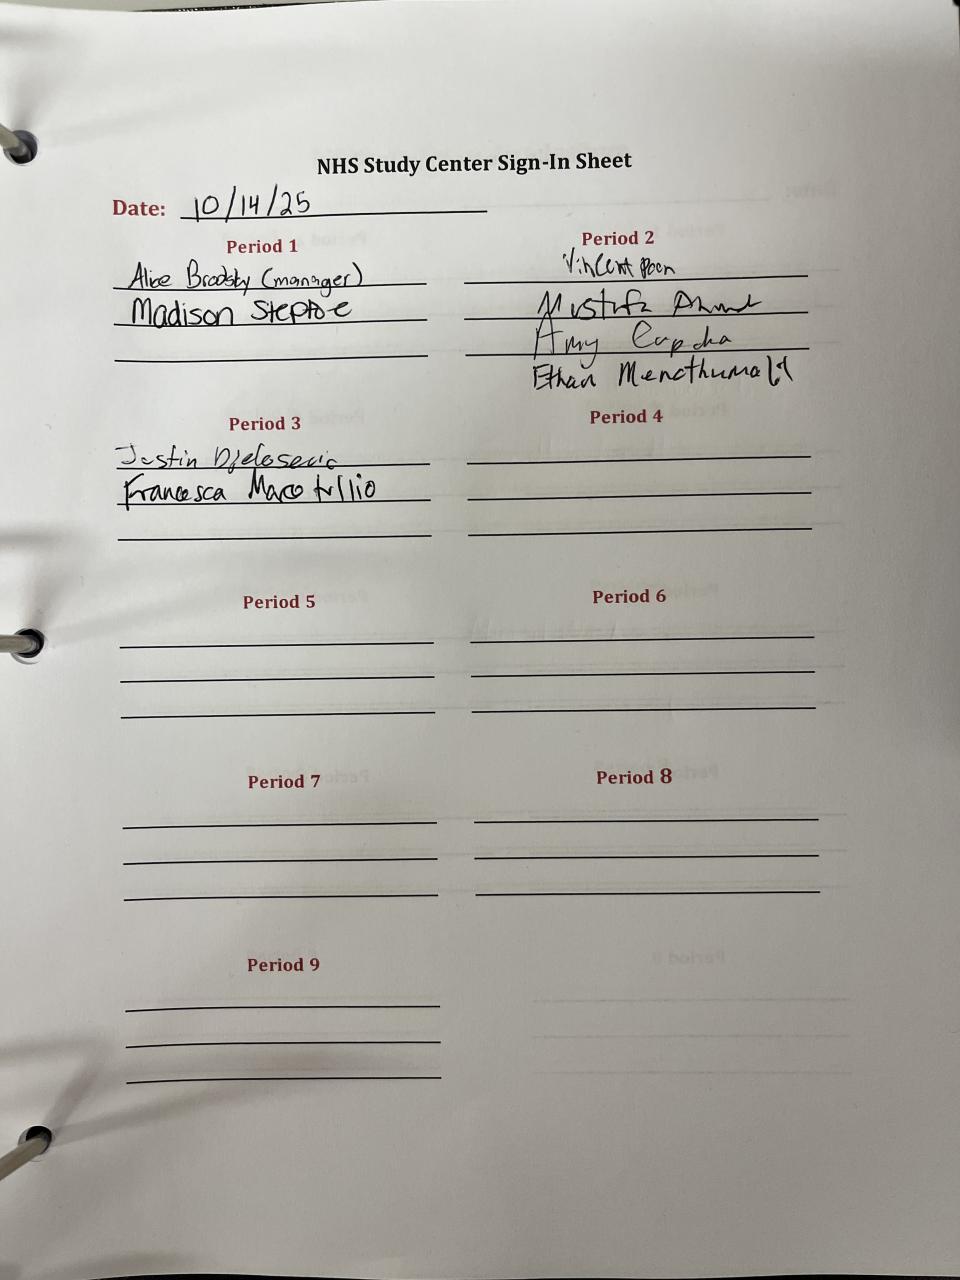 NHS Study Center Sign-In Sheet
Date: 10/14/25
Period 1
Alice Brodsky (manager)
Madison Steptoe
Period 2
Vincent Poon
Mustafa Ahmed
Amy Cupcha
Ethan
Period 3
Justin Djelosevic
Francesca
Period 4
Period 5
Period 6
Period 7
Period 8
Period 9